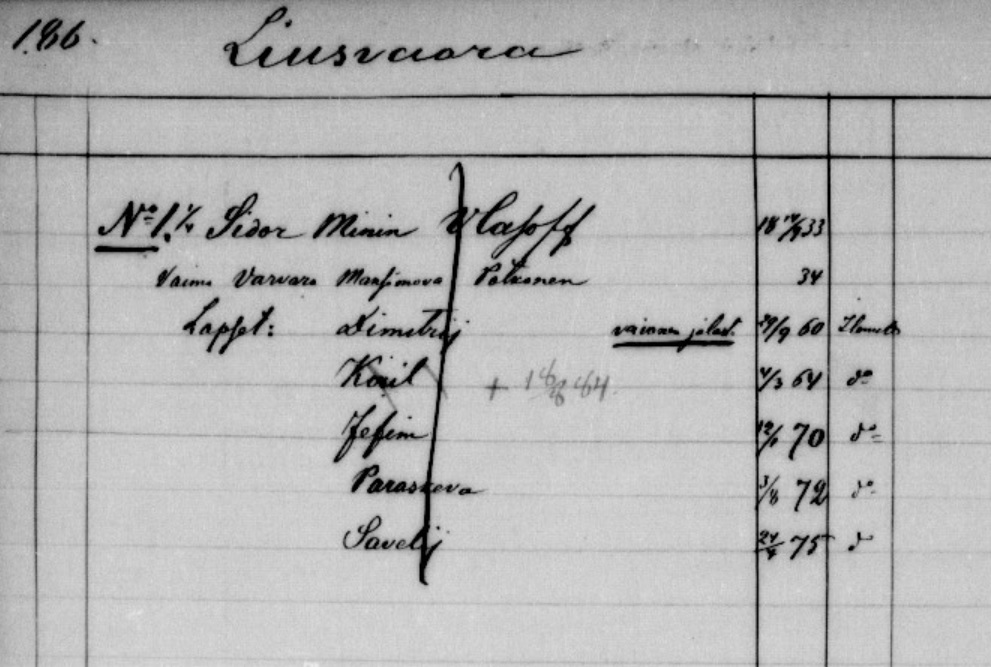 186. Liusvaara
No 1. 1/4 Sidor Minin Wlasoff 18 33
Vaimo Varvara Maksimova Potkonen 34
Lapset: Dimitrij vaivanen jalast. 29/9 60 Ilomants
Kiril + 18 84. 4/3 64 do
Jefim 12/1 70 do
Paraskeva 3/8 72 do
Savelij 24/4 75 do